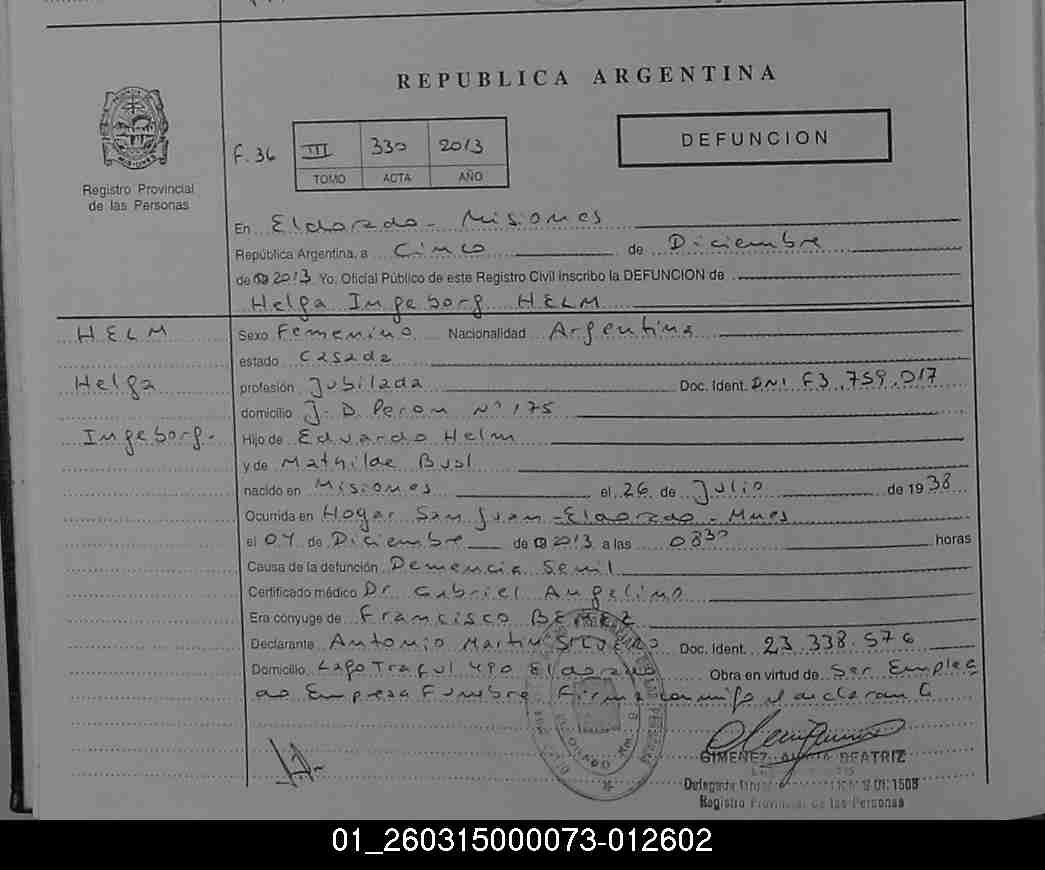 REPUBLICA ARGENTINA
DEFUNCION
F. 36 III 330 2013
TOMO ACTA AÑO
Registro Provincial
de las Personas
En Eldorado - Misiones
República Argentina, a Cinco de Diciembre
de 2013 Yo, Oficial Público de este Registro Civil inscribo la DEFUNCION de
Helga Ingeborg HELM
HELM
Helga
Ingeborg.
Sexo Femenino Nacionalidad Argentina
estado Casada
profesión Jubilada Doc. Ident. DNI F3.759.017
domicilio J. D. Peron Nº 175
Hijo de Eduardo Helm
y de Mathilde
nacido en Misiones el 26 de Julio de 1938
Ocurrida en Hogar San Juan - Eldorado - Mnes
el 04 de Diciembre de 2013 a las 0830 horas
Causa de la defunción Demencia Senil
Certificado médico Dr. Gabriel Angelino
Era cónyuge de Francisco
Declarante Antonio Martin Doc. Ident. 23.338.576
Domicilio Lago Traful 490 Eldorado Obra en virtud de Ser Emplea
do Empresa Funebre Firma conmigo el declarante
GIMENEZ, BEATRIZ
Registro Provincial de las Personas
01_260315000073-012602